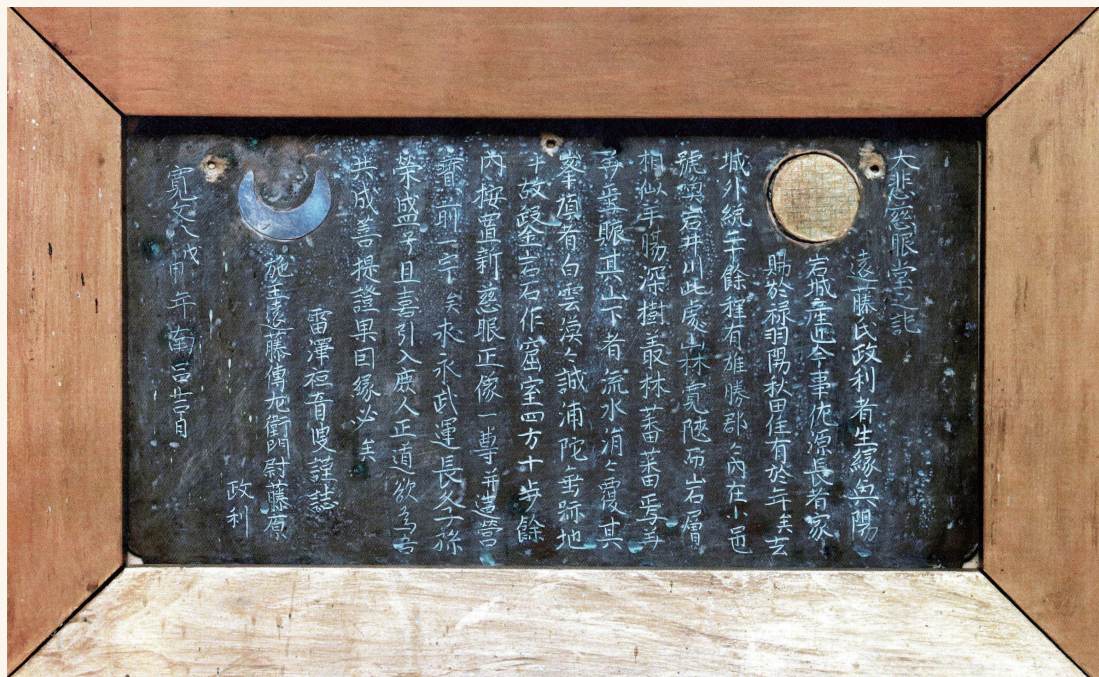 大悲慈眼堂之記
遠藤氏政利者生縁奥陽
岩城産近今事佐源長者家
賜於禄羽陽秋田住有於年矣玄
城外統二十餘程有雄勝郡々内在小邑
號岩井川此處山林寛陜而岩層
相似羊腸深樹叢林蕃茱
垂賑其山下者流水涓々覆其
峯頂者白雲漠々誠浦陀無跡地
乎故政金岩石作窟室四方十歩餘
内按置新慈眼正像一尊并造營
前一宇矣永永武運長久子孫
榮盛予且喜引入廣人正道欲為
共成善提證果因縁必矣
雷澤祖音叟謹誌
施主遠藤傳左衛門尉藤原
政利
寛文八戊申年菊